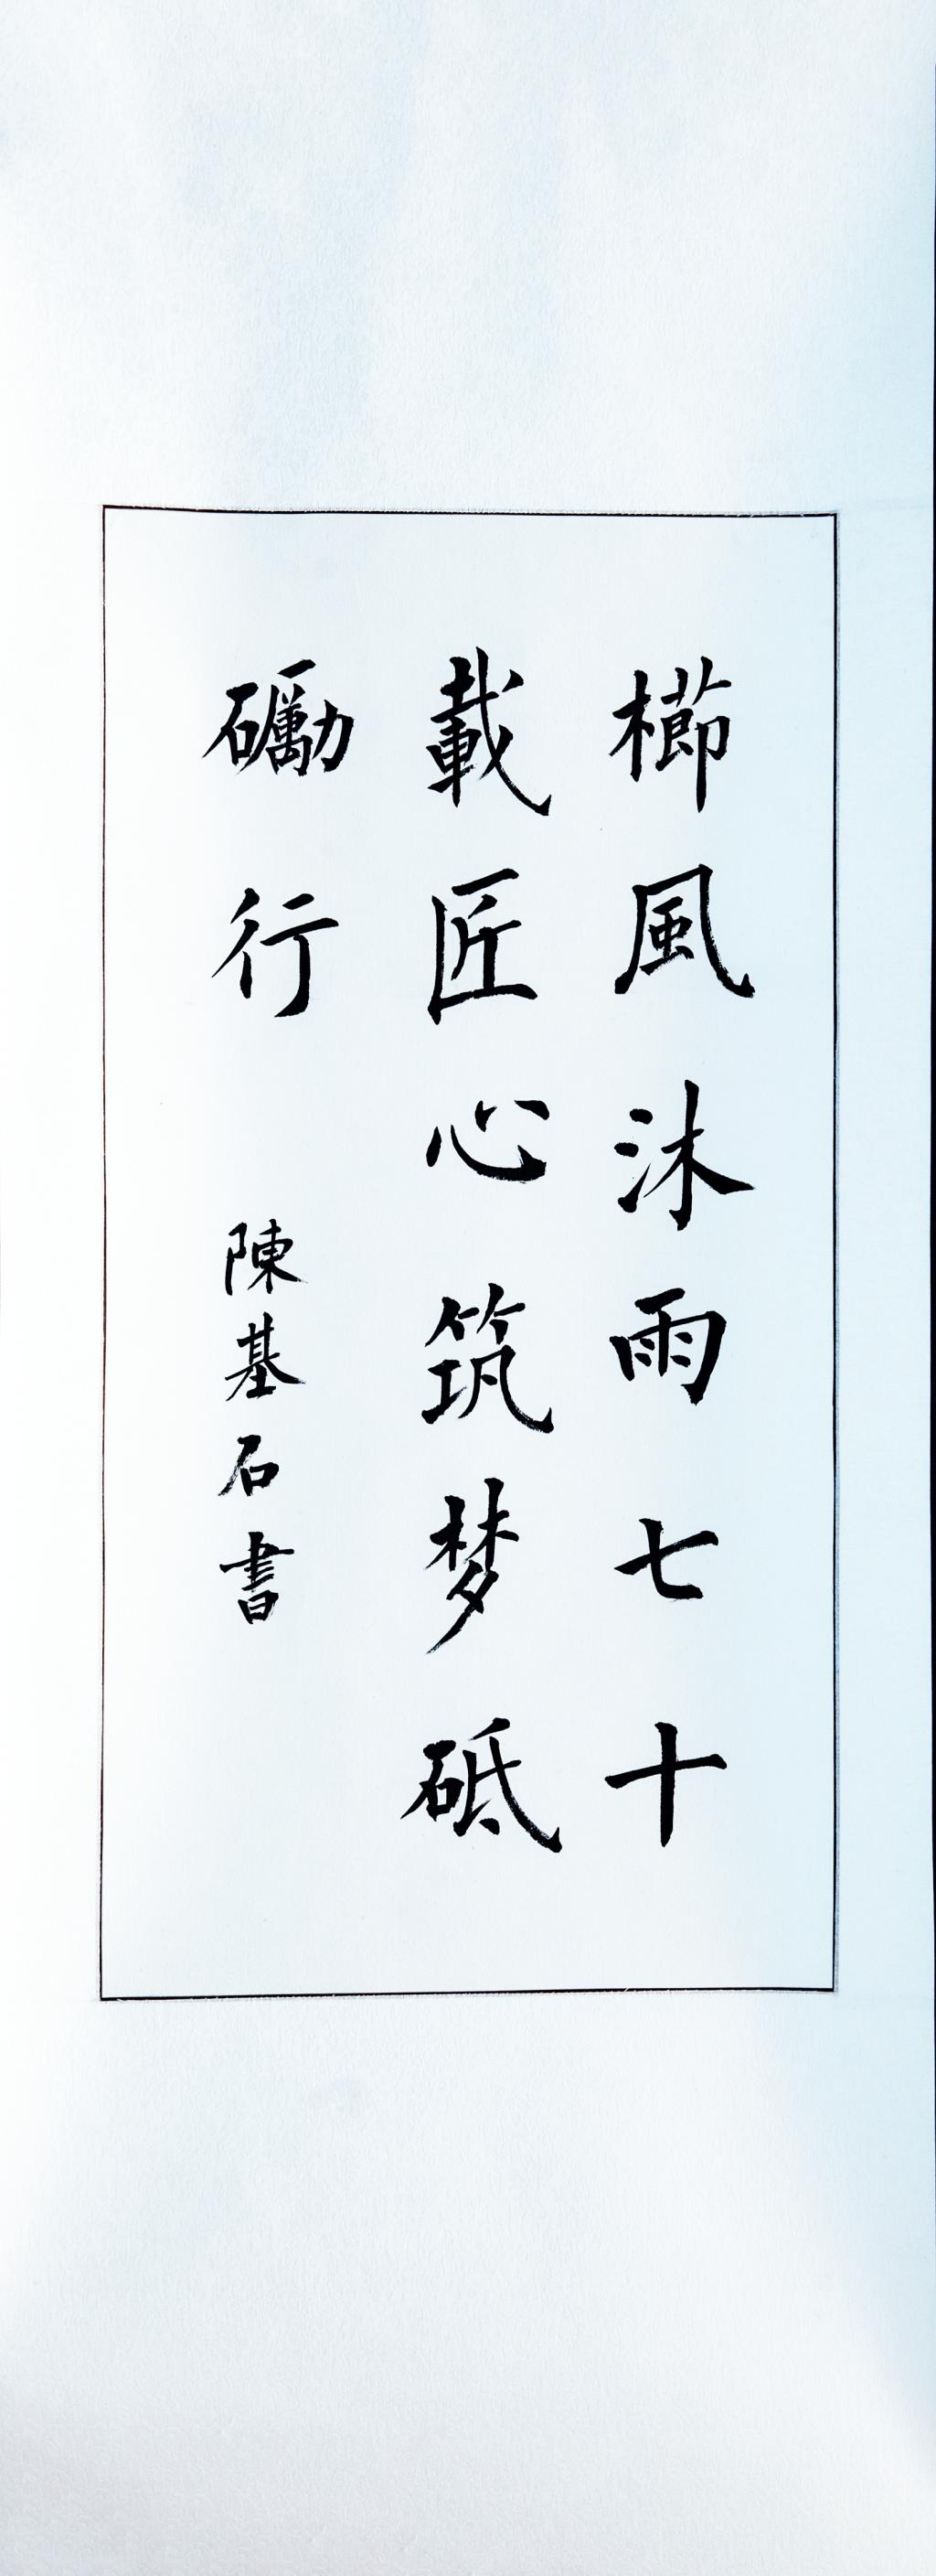 櫛風沐雨七十
載匠心筑梦砥
礪行 陳基石書